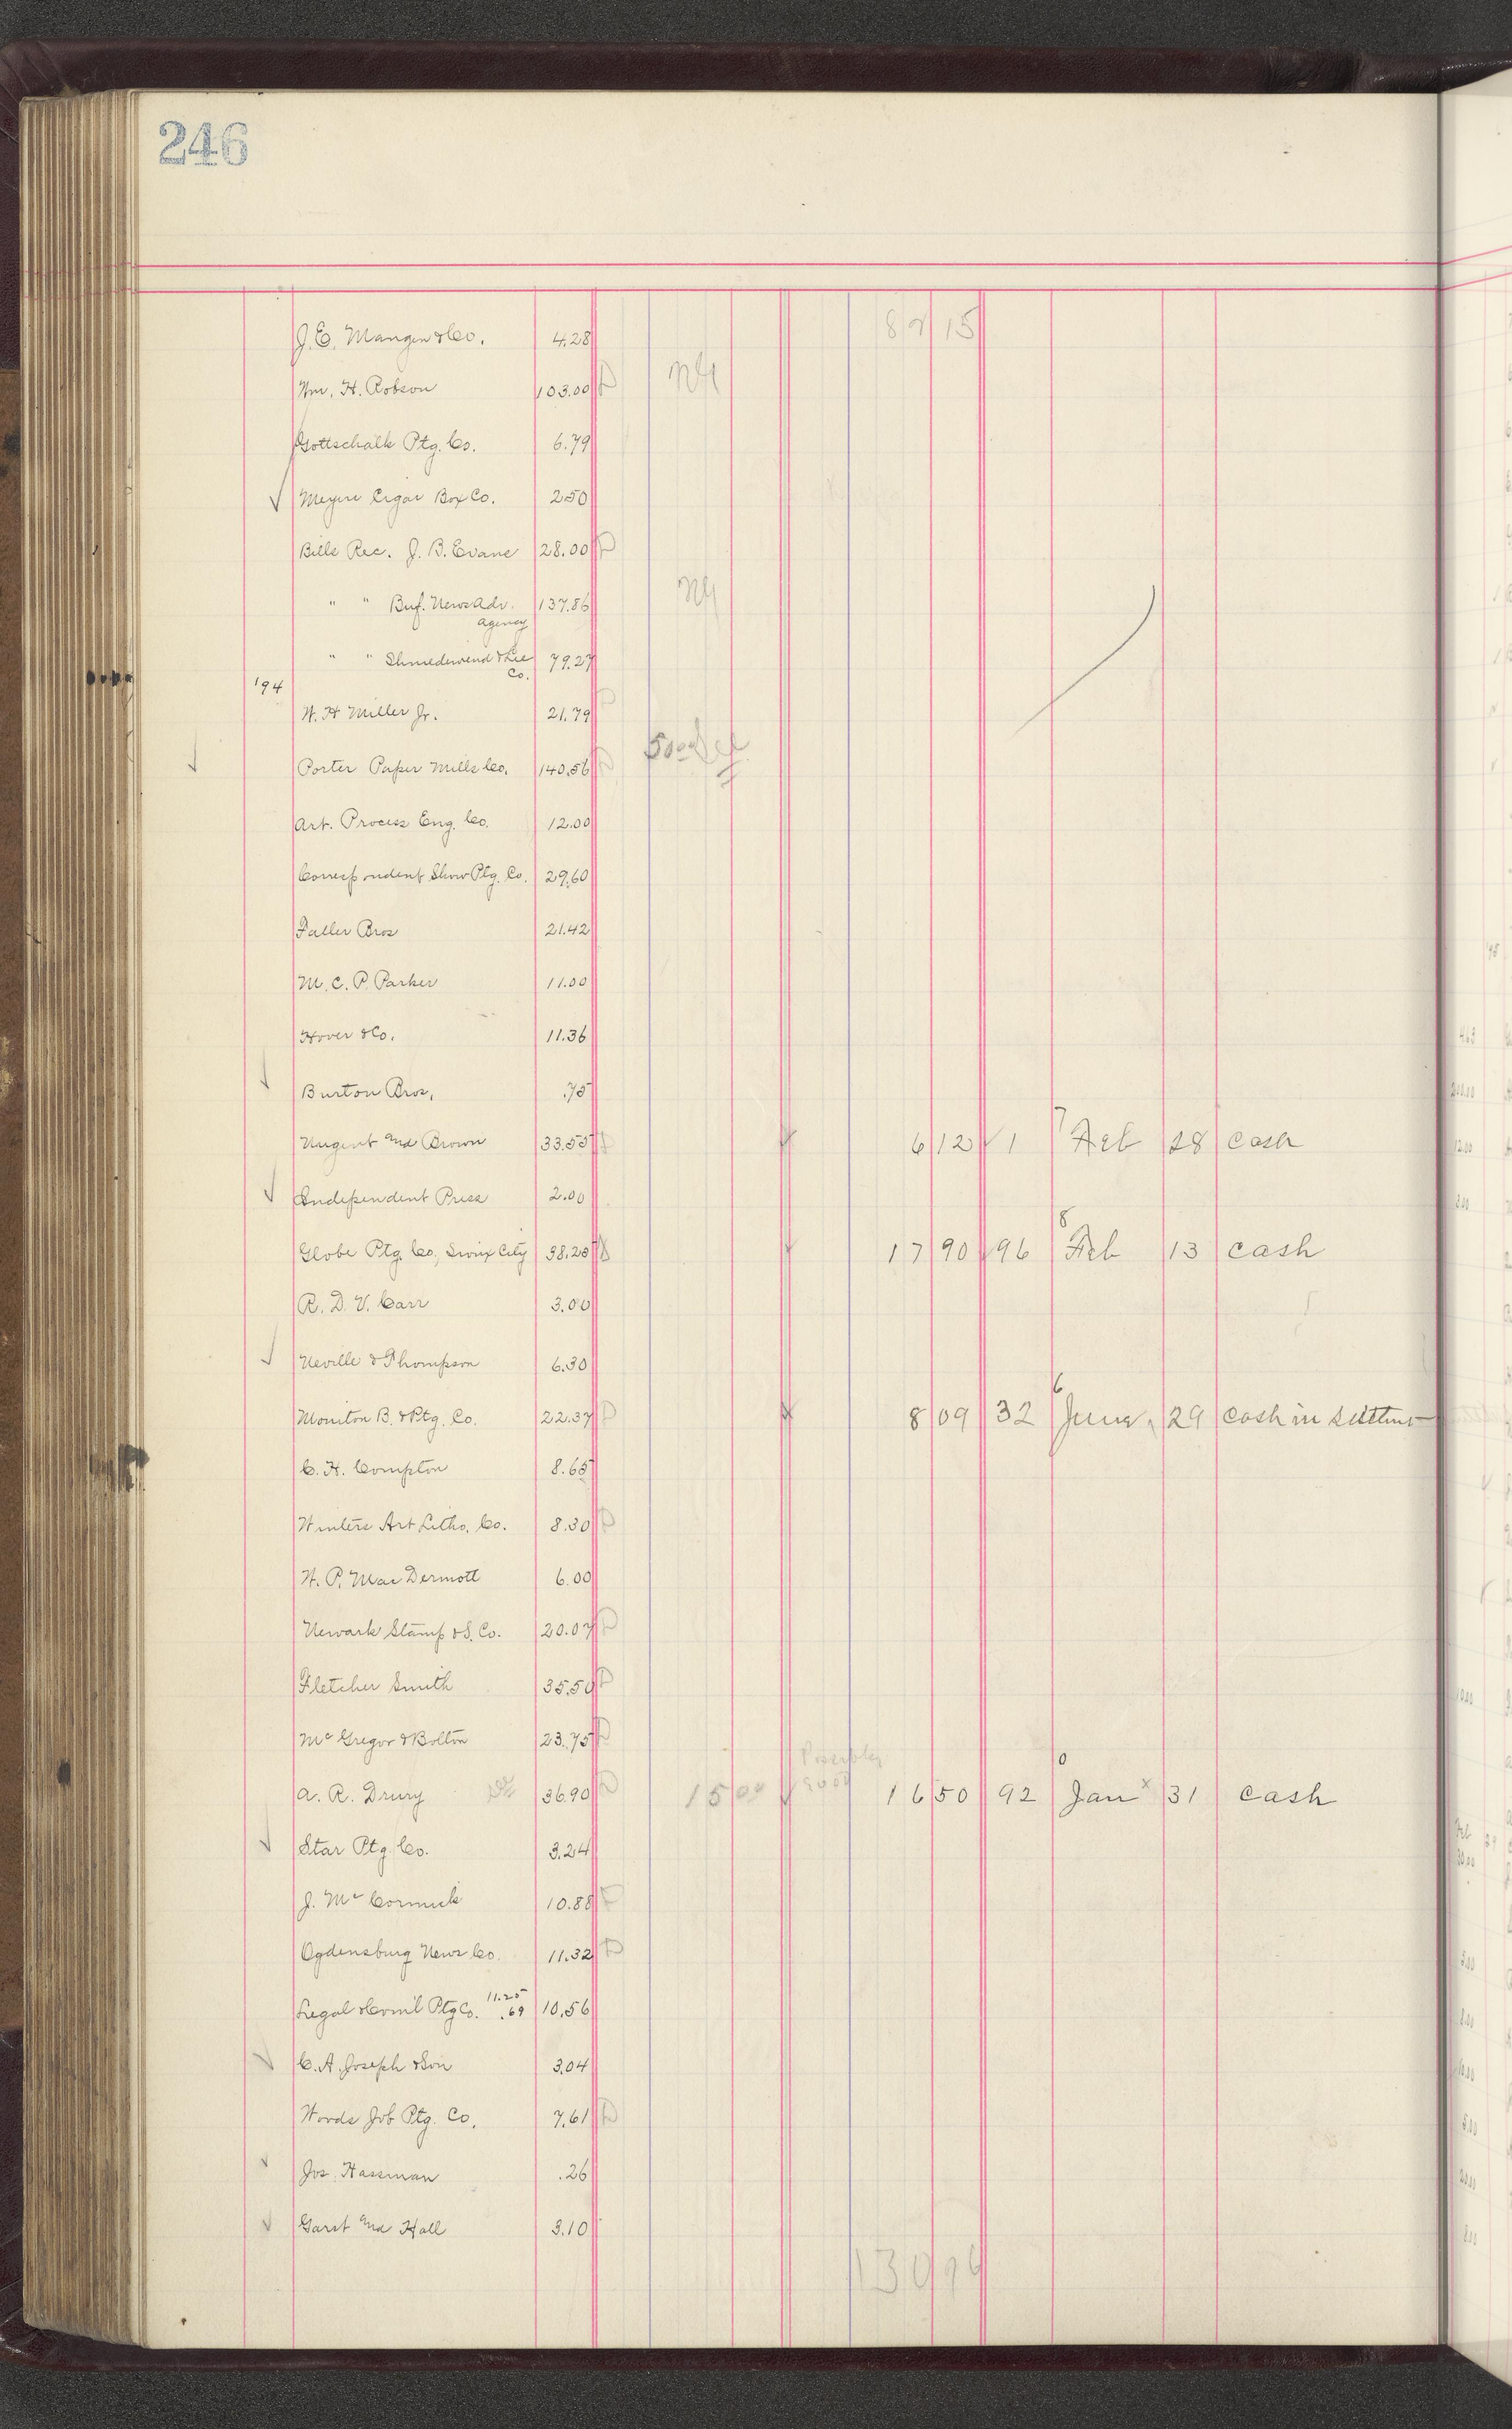 246
J. E. Mangin & Co. 4.28 87 15
Wm. H. Robson 103.00
Gottschalk Ptg. Co. 6.79
Meyer Cigar Box Co. 250
Bills Rec. J. B. Evans 28.00
" " Buf. News Adv. 137.86
agency
" " Shniedewend & Lee 79.27
Co.
'94
W. H Miller Jr. 21.79
Porter Paper Mills Co. 140.56
Art. Process Eng. Co. 12.00
Correspondent Show Ptg. Co. 29.60
Faller Bros 21.42
M. C. P. Parker 11.00
Hover & Co. 11.36
Burton Bros. .75
Nugent and Brown 33.55 6 12 1 7 Feb 28 cash
Independent Press 2.00
Globe Ptg. Co., Sioux City 38.25 17 90 96 8 Feb 13 cash
R. D. V. Carr 3.00
Neville & Thompson 6.30
Moniton B. & Ptg. Co. 22.37 8 09 32 6 June 29 cash in
C. H. Compton 8.65
Winters Art Litho. Co. 8.30
W. P. Mac Dermott 6.00
Newark Stamp & S. Co. 20.07
Fletcher Smith 35.50
McGregor & Bolton 23.75
A. R. Drury 36.90 15 00 16 50 92 0 Jan x 31 cash
Star Ptg. Co. 3.24
J. McCormick 10.88
Ogdensburg News Co. 11.32
Legal & Com'l Ptg Co. 11.25 .69 10.56
C. A. Joseph & Son 3.04
Woods Job Ptg. Co. 7.61
Jos. Hassman .26
Garst and Hall 3.10